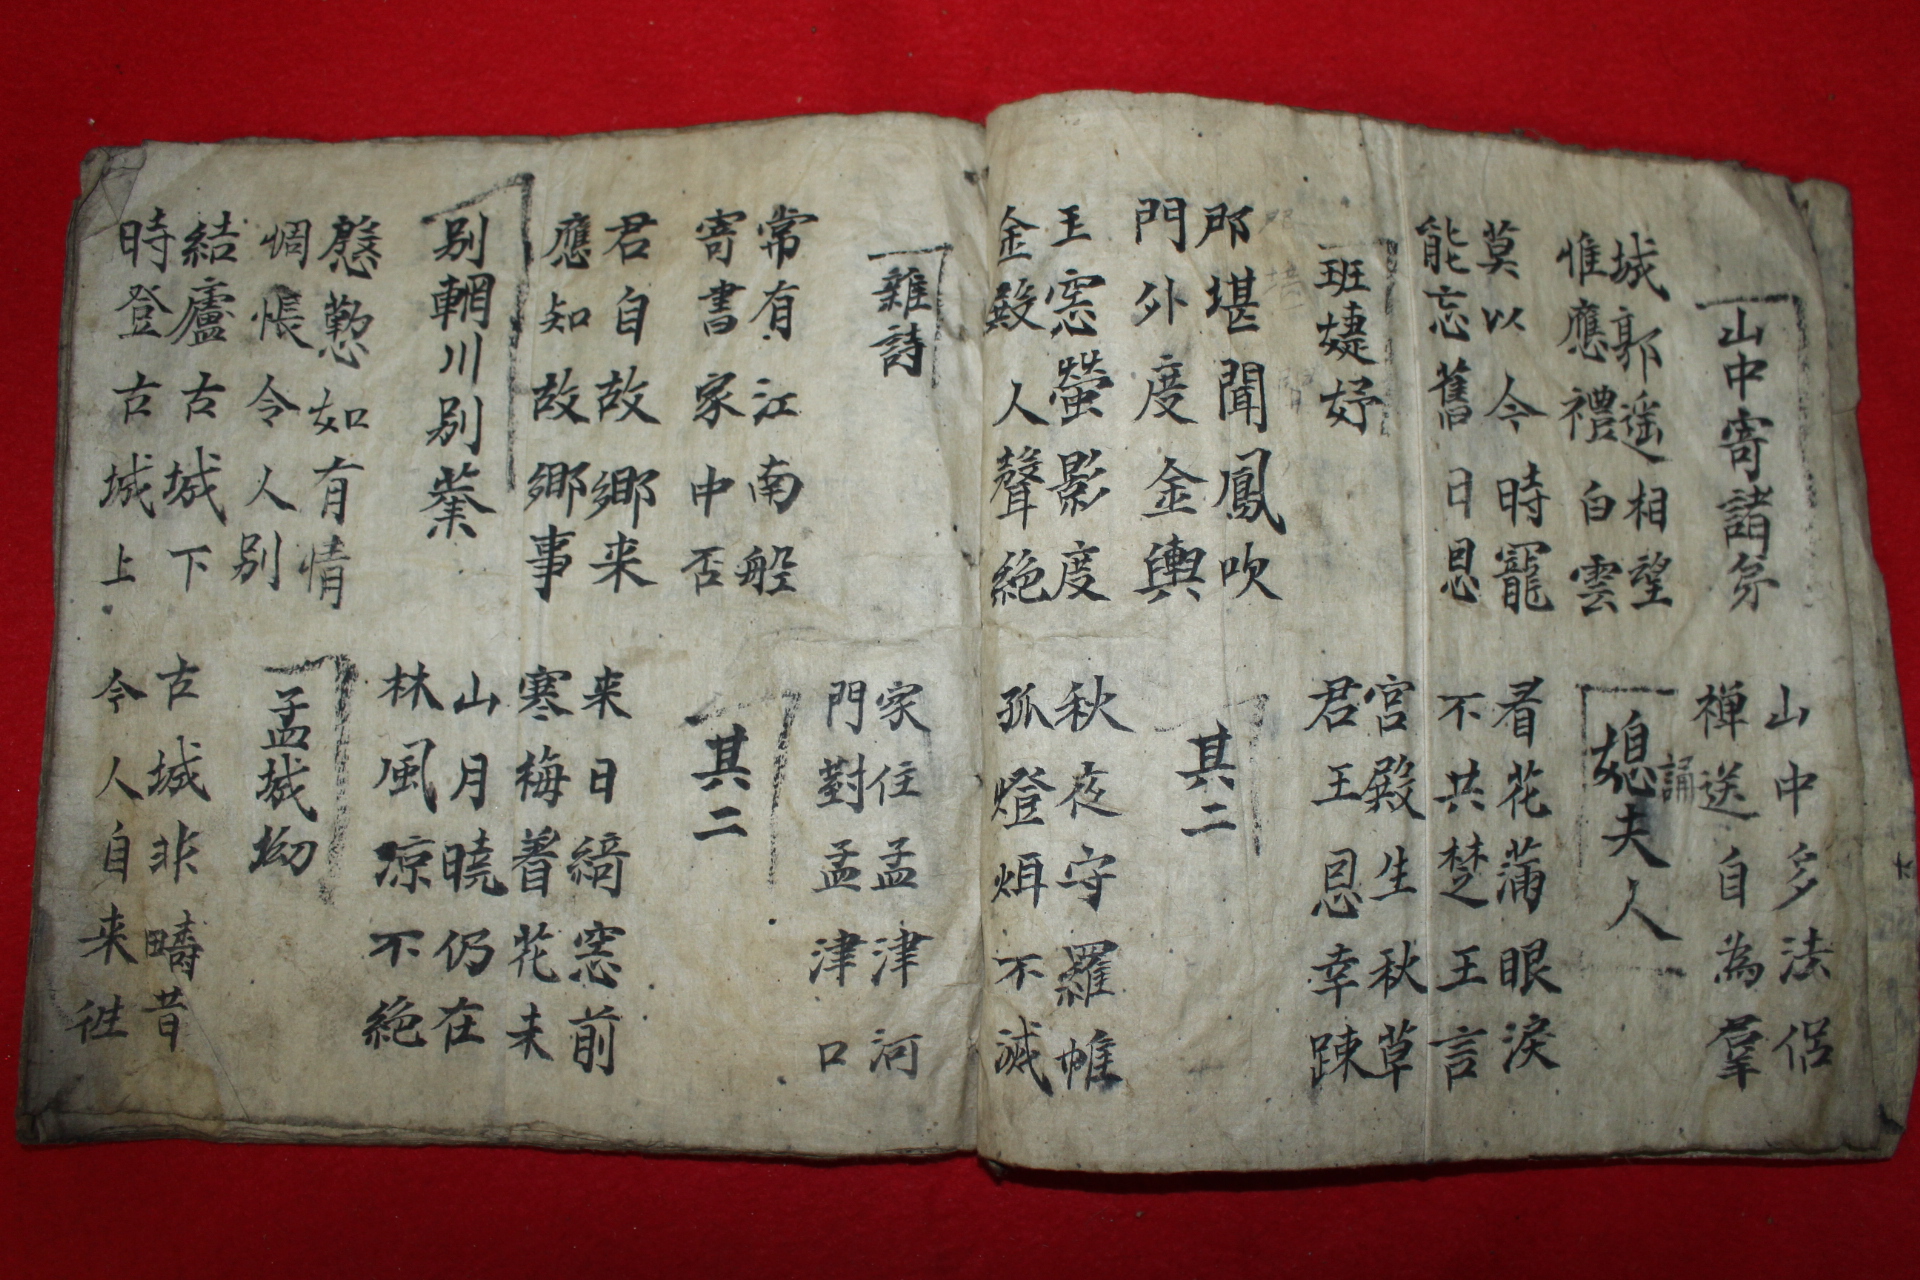 山中寄諸弟
山中多法侶
禪送自為羣
誦
城郭遥相望
惟應禮白雲
媳夫人
莫以今時寵
能忘舊日恩
看花蒲眼淚
不共楚王言
班婕妤
宮殿生秋草
君王恩幸踈
那堪聞鳳吹
門外度金輿
其二
王窓螢影度
金殿人聲絶
秋夜守羅帷
孤燈烱不滅
雜詩
家住孟津河
門對孟津口
常有江南船
寄書家中否
其二
君自故鄉来
應知故鄉事
来日綺窓前
寒梅着花未
別輞川別業
山月曉仍在
林風凉不絶
慇懃如有情
惆悵令人別
孟城坳
結廬古城下
時登古城上
古城非疇昔
今人自来徃